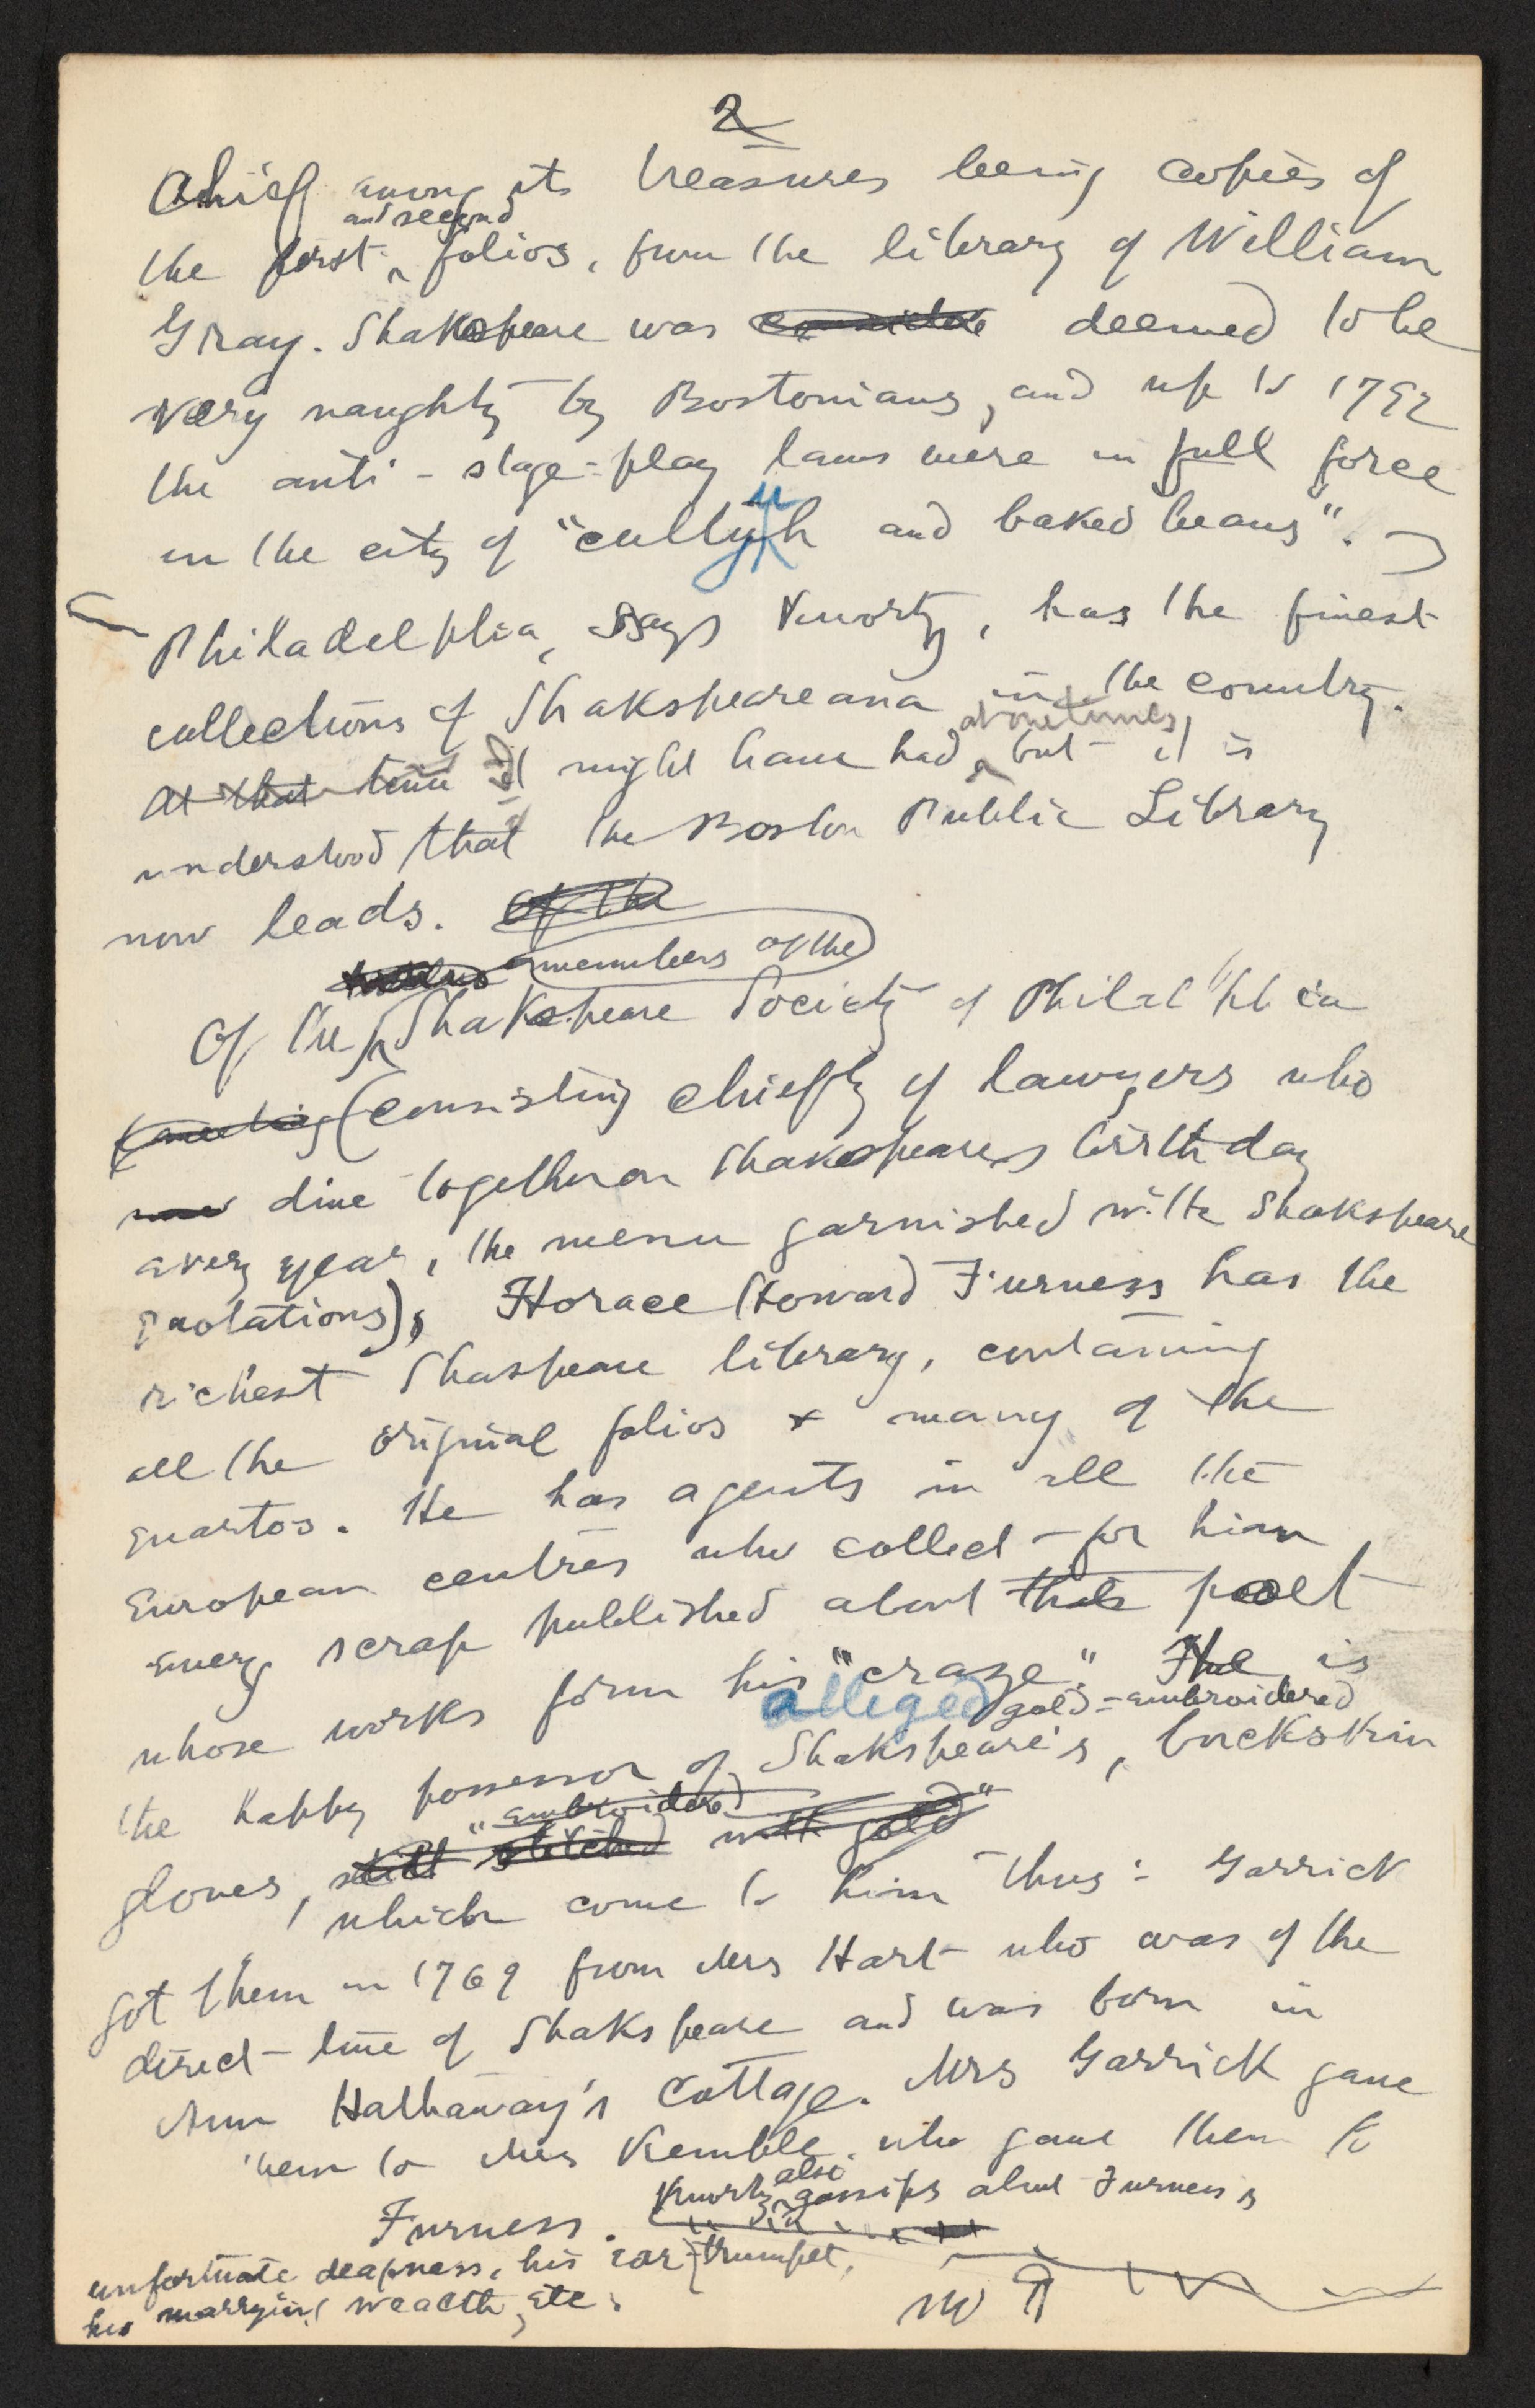 2
Chief among its treasures being copies of
and second
the first folios, from the library of William
Gray. Shakspeare was deemed to be
very naughty by Bostonians, and up to 1792
the anti-stage-play laws were in full force
in the city of "cultyuh and baked beans".
Philadelphia, says Knortz, has the finest
collections of Shakspeareana in the country.
at one time,
At that time it might have had but it is
understood that the Boston Public Library
now leads. Of the
members of the
Of the Shakspeare Society of Philadelphia
(consisting chiefly of lawyers who
dine together on Shakspeare's birthday
every year, the menu garnished with Shakspeare
quotations), Horace Howard Furness has the
richest Shaspeare library, containing
all the original folios & many of the
quartos. He has agents in all the
European centres who collect for him
every scrap published about the poet
whose works form his "craze." He is
alleged gold-embroidered
the happy possessor of Shakspeare's, buckskin
"embroidered
gloves, stitched with gold"
which come to him thus: Garrick
got them in 1769 from Mrs Hart who was of the
direct line of Shakspeare and was born in
Ann Hathaway's Cottage. Mrs Garrick gave
them to Mrs Kemble, who gave them to
also
Knortz gossips about Furness's
Furness.
unfortunate deafness, his ear-trumpet,
his marrying wealth, etc.
no ¶